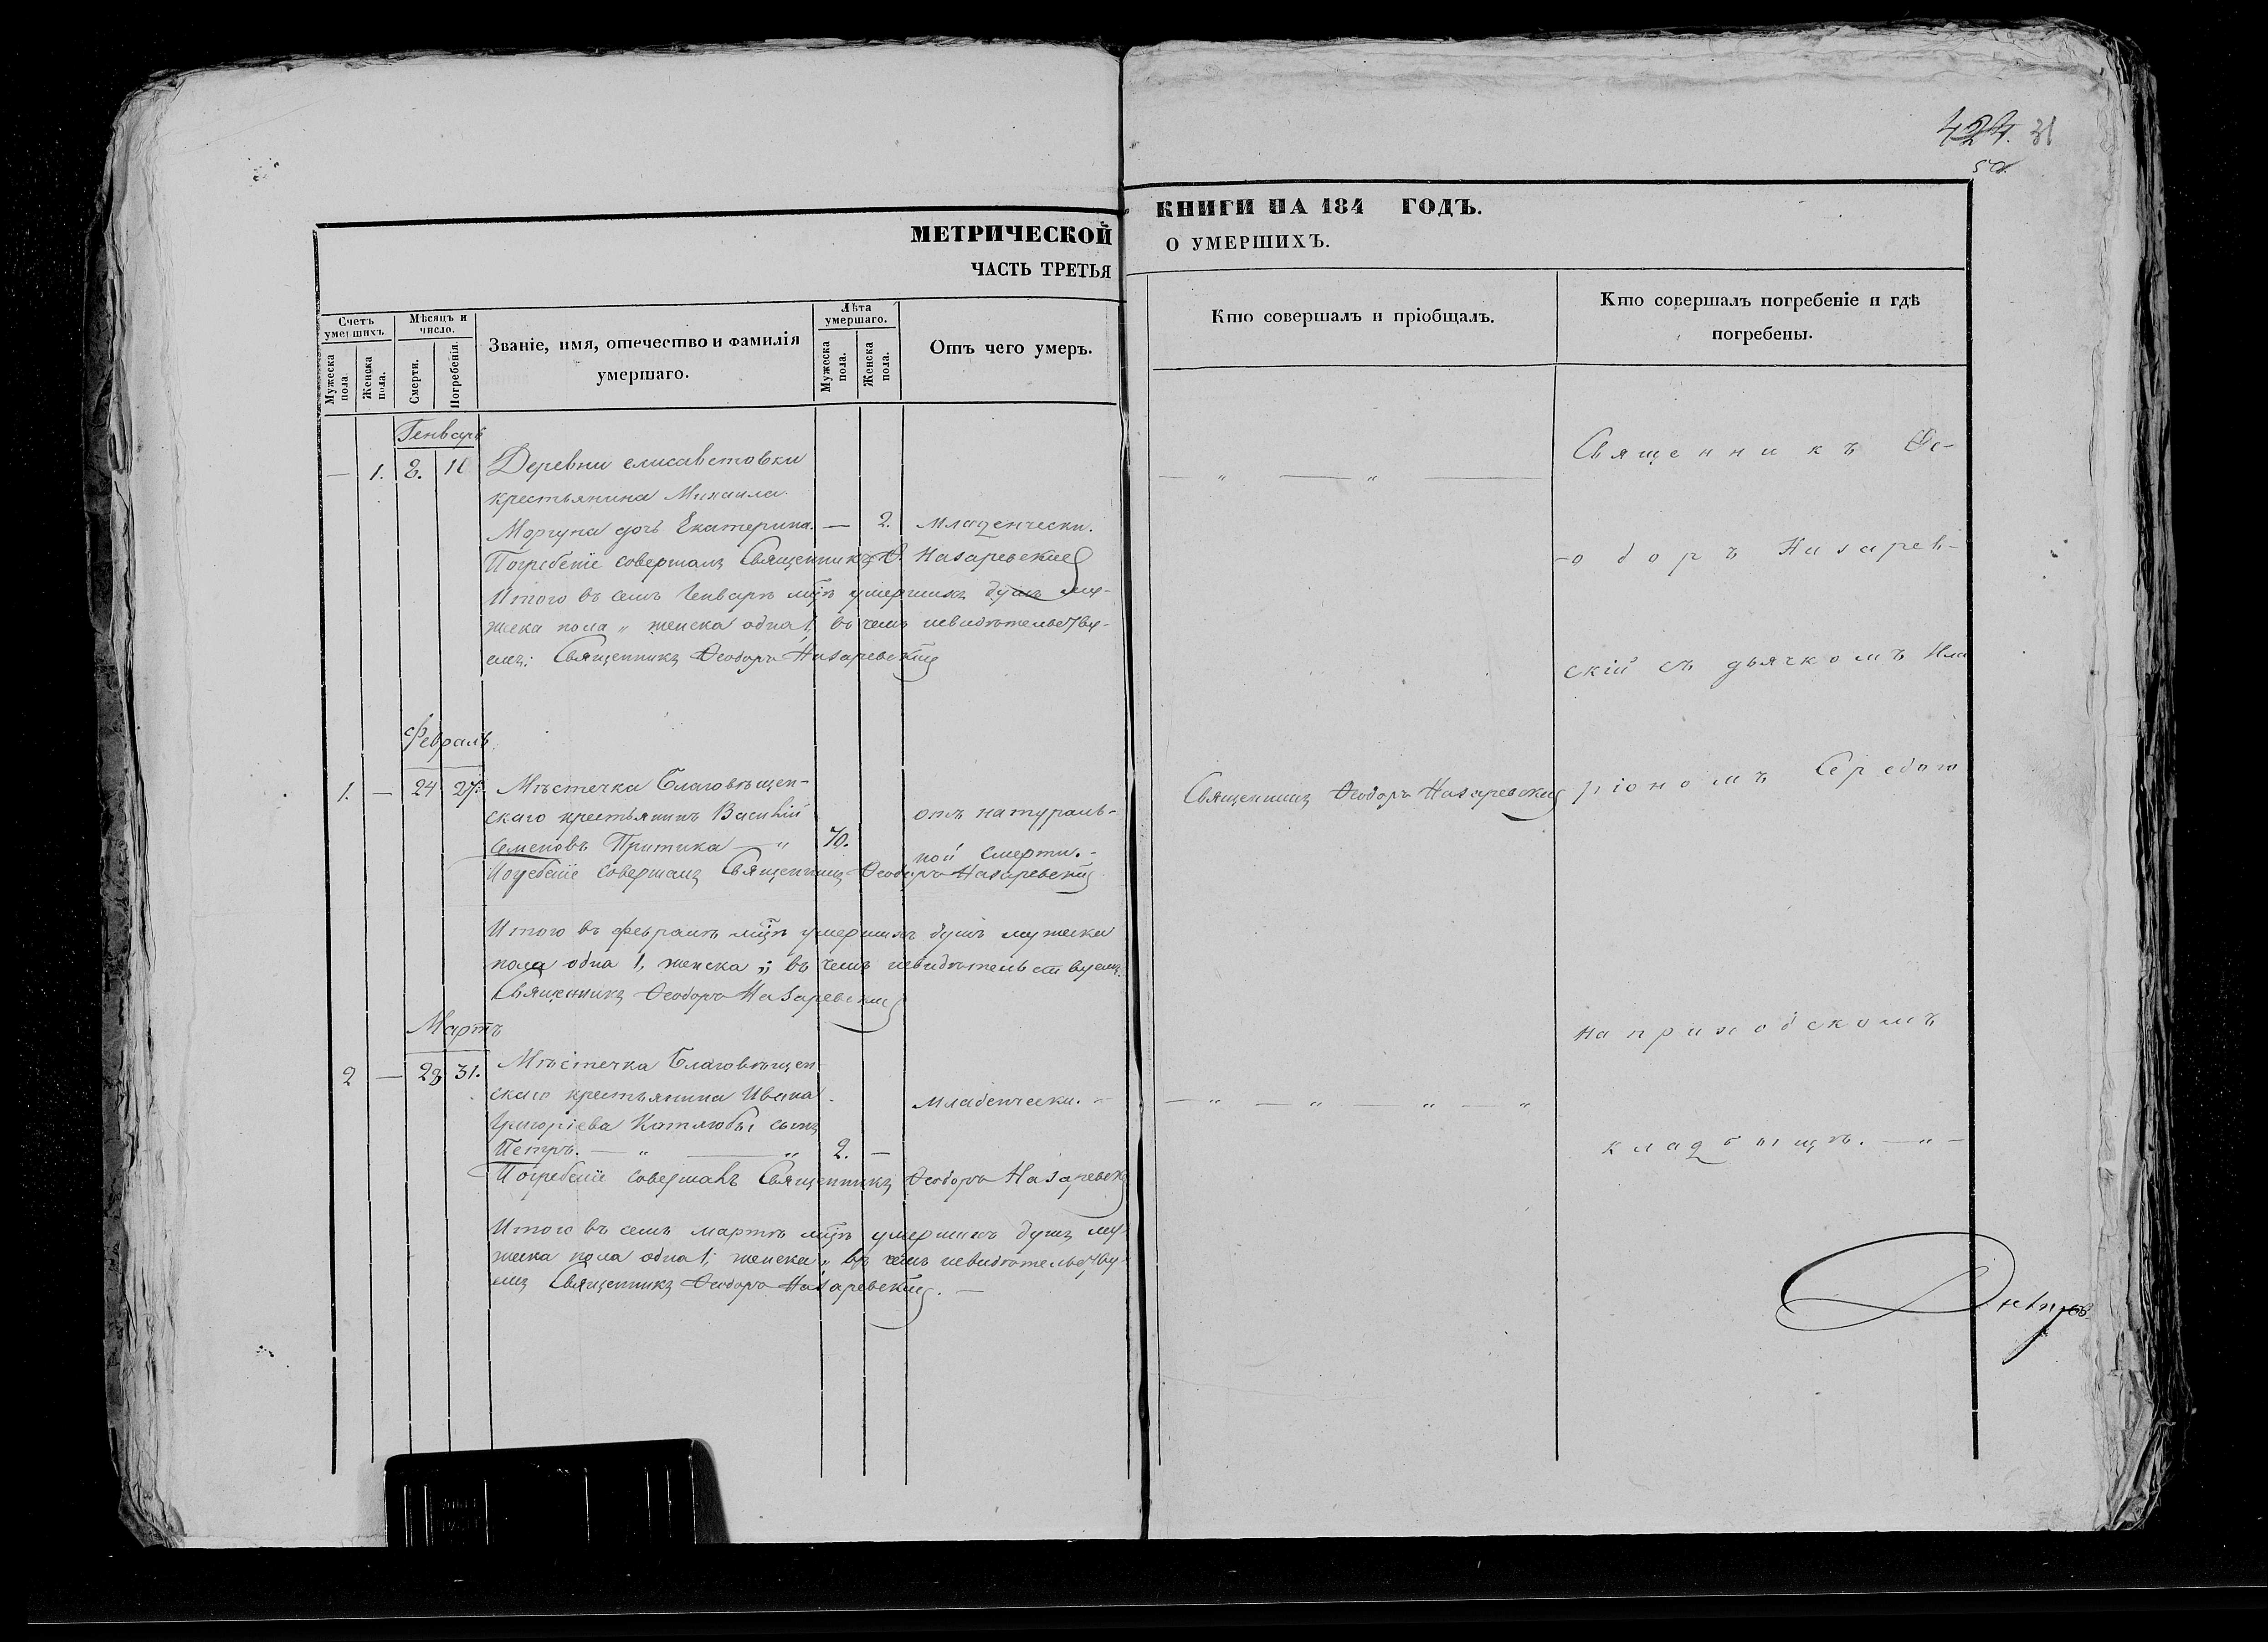 424. 31
52
МЕТРИЧЕСКОЙ
ЧАСТЬ ТРЕТЬЯ
Счетъ умершихъ.
Мѣсяцъ и число.
Званіе, имя, отечество и фамилія умершаго.
Лѣта умершаго.
Отъ чего умеръ.
Мужеска пола.
Женска пола.
Смерти.
Погребенія.
Мужеска пола.
Женска пола.
Генварь
— 1. 8. 10 Деревни елисаветовки
крестьянина Михаила
Моргуна дочь Екатерина. — 2. младенчески.
Погребеніе совершалъ Священникъ Ѳ. Назаревскій
Итого въ семъ Генварѣ мцѣ умершихъ душъ му-
жеска пола „ женска одна 1, въ чемъ
емъ: Священникъ Ѳеодоръ Назаревскій
Февраль
1. — 24 27. Мѣстечка Благовѣщен-
скаго крестьянинъ Василій отъ натураль-
Семеновъ Притика — „ 70. ной смерти. -
Погребеніе совершалъ Священникъ Ѳеодоръ Назаревскій
Итого въ февралѣ мцѣ умершихъ душъ мужеска
пола одна 1, женска „ въ чемъ
Священникъ Ѳеодоръ Назаревскій
Мартъ
2 — 28 31. Мѣстечка Благовѣщен-
скаго крестьянина Ивана младенчески.
Григоріева Катлюбы сынъ
Петръ. — „ — „ 2. —
Погребеніе совершалъ Священникъ Ѳеодоръ Назаревск
Итого въ семъ мартѣ мцѣ умершихъ душъ му-
жеска пола одна 1, женска „ въ чемъ
емъ Священникъ Ѳеодоръ Назаревскій. —
КНИГИ НА 184 ГОДЪ.
О УМЕРШИХЪ.
Кто совершалъ и пріобщалъ.
Кто совершалъ погребеніе и гдѣ погребены.
— „ — „ —
Священникъ Ѳе-
-о доръ Назарев-
скій съ дьячкомъ Ила
Священникъ Ѳеодоръ Назаревскій
ріономъ Середою
на приходскомъ
— „ — „ „ — „
кладбищѣ. — „ —